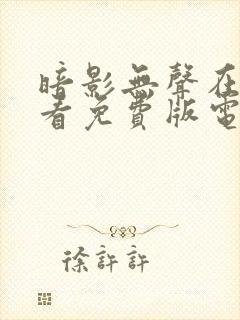 暗影無聲在
看免費版電
徐許許